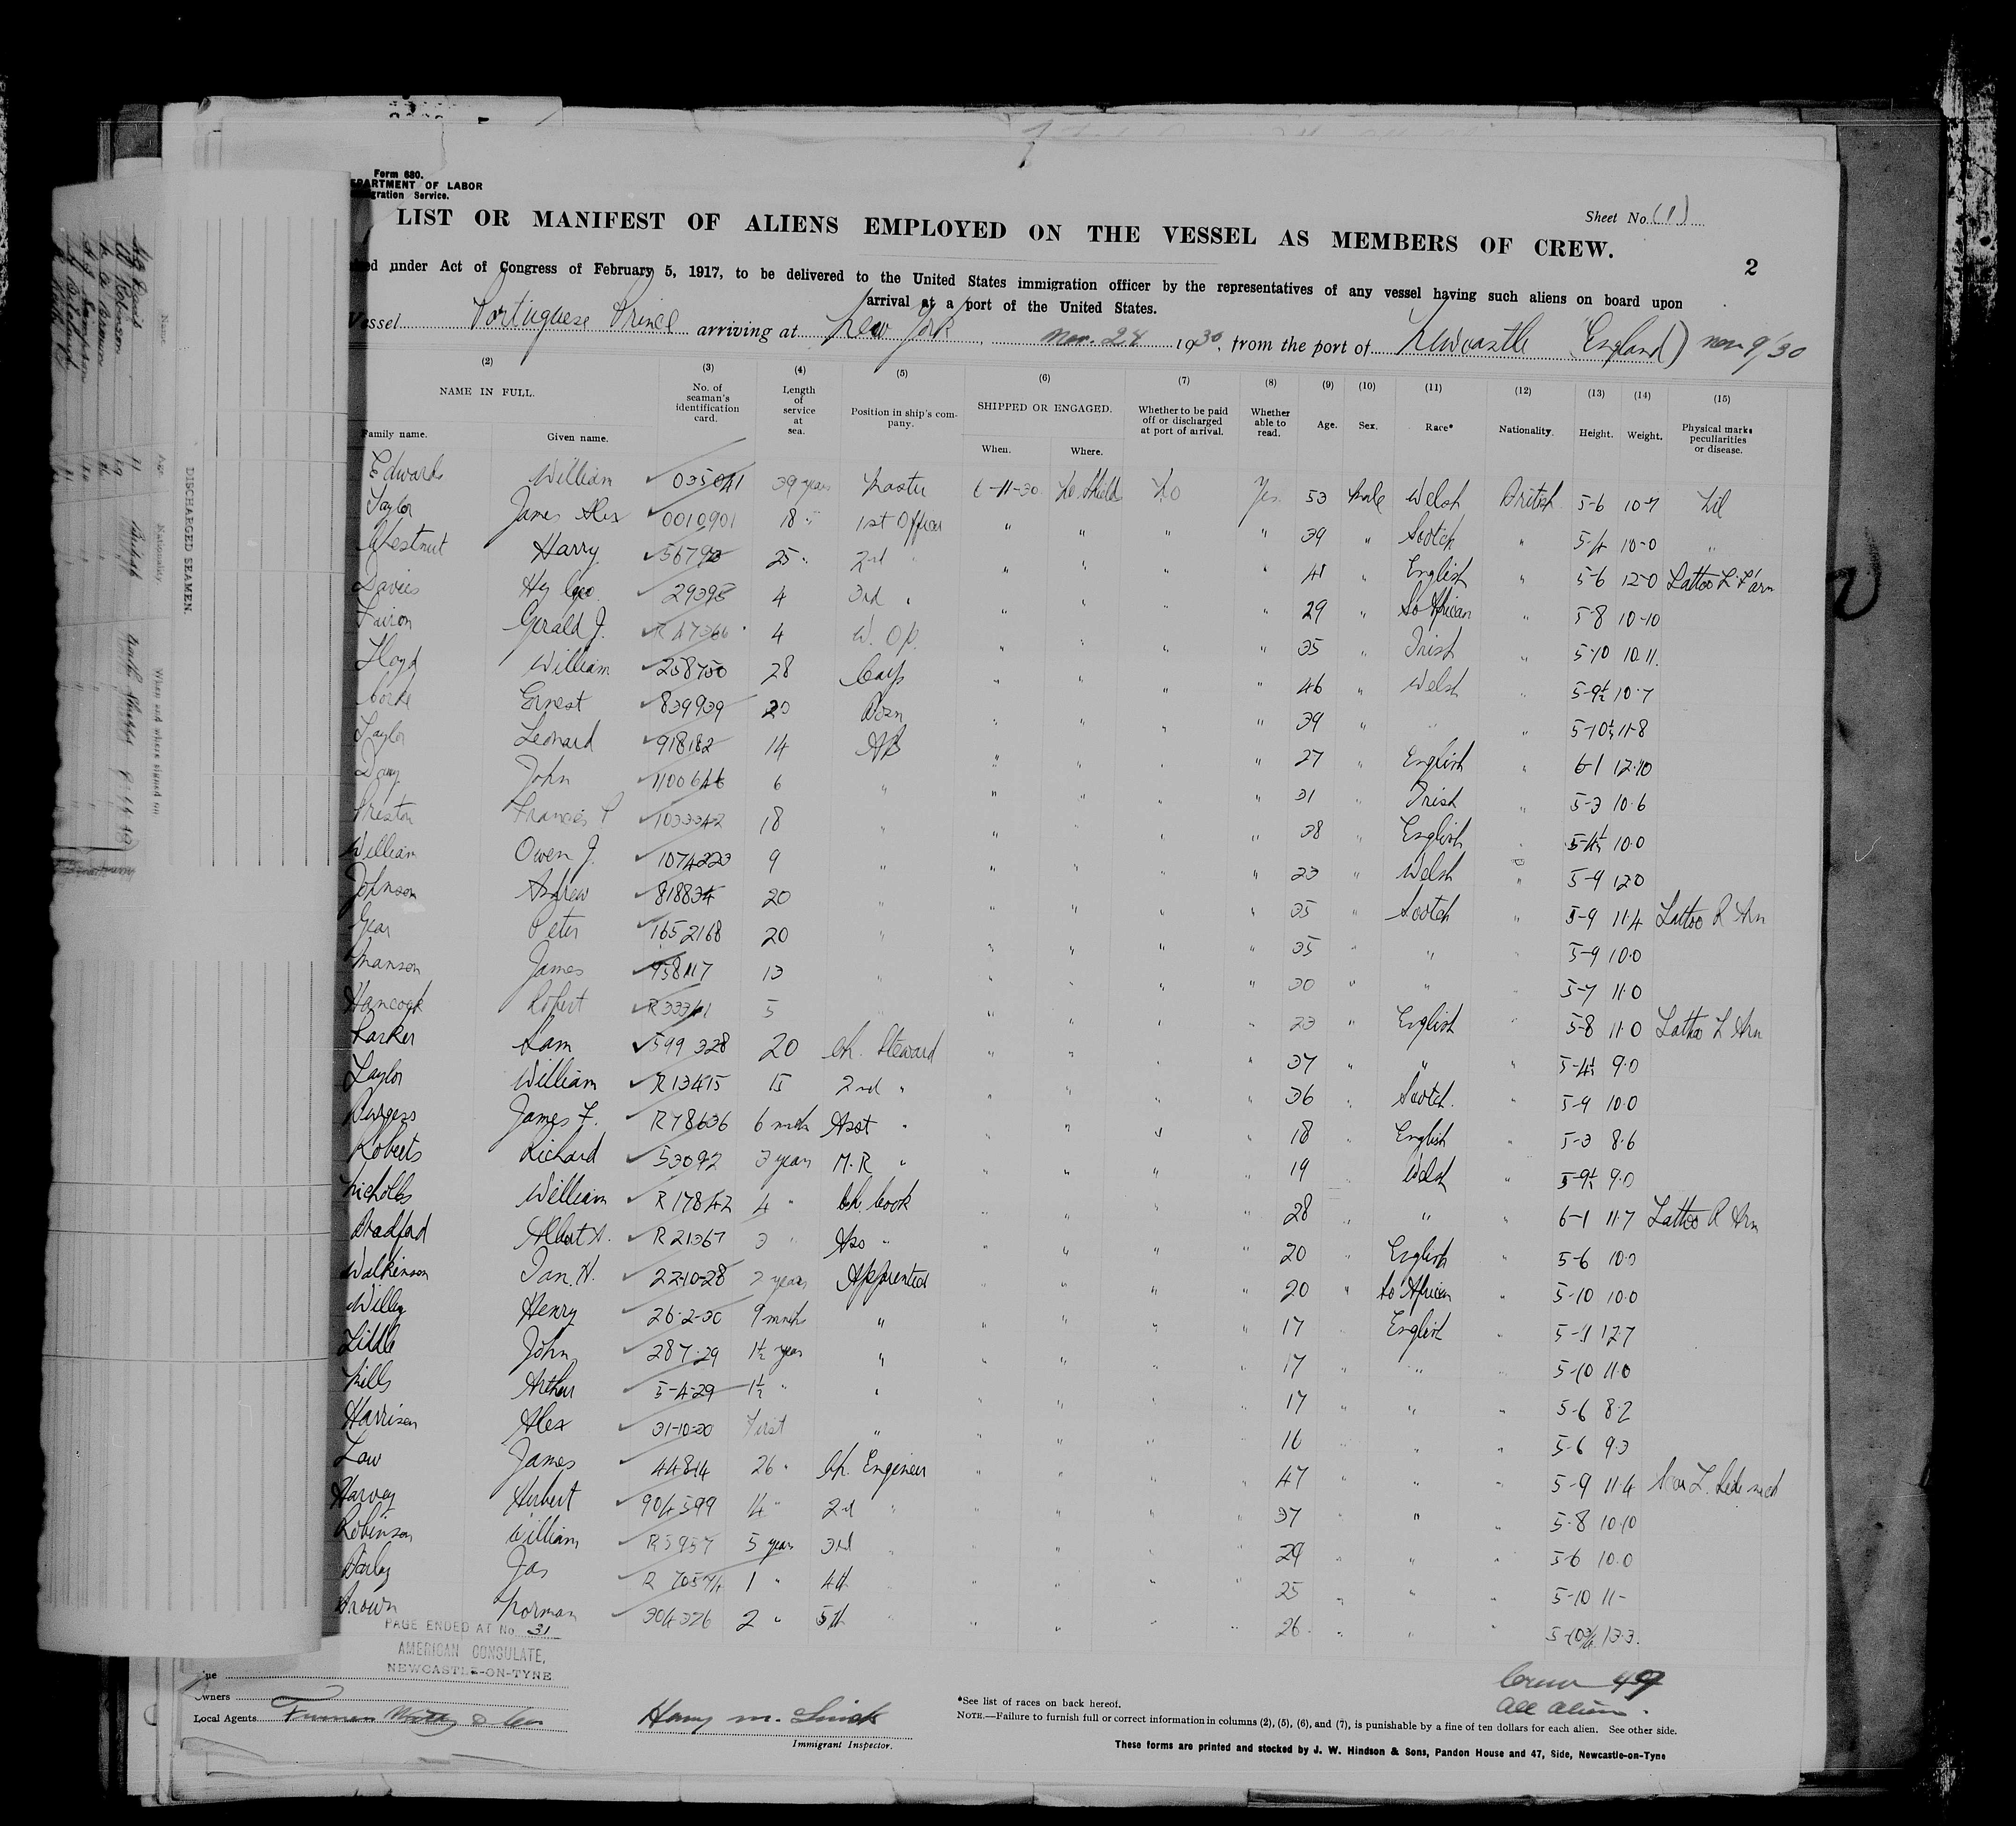 Form 680.
DEPARTMENT OF LABOR
Immigration Service.
Sheet No. (1)
LIST OR MANIFEST OF ALIENS EMPLOYED ON THE VESSEL AS MEMBERS OF CREW.
2
under Act of Congress of February 5, 1917, to be delivered to the United States immigration officer by the representatives of any vessel having such aliens on board upon
arrival at a port of the United States.
Vessel Portuguese Prince arriving at New York, Nov. 24 1930, from the port of Newcastle (England) Nov 9/30
(2) (3) (4) (5) (6) (7) (8) (9) (10) (11) (12) (13) (14) (15)
NAME IN FULL. No. of seaman's identification card. Length of service at sea. Position in ship's company. SHIPPED OR ENGAGED. Whether to be paid off or discharged at port of arrival. Whether able to read. Age. Sex. Race* Nationality. Height. Weight. Physical marks peculiarities or disease.
Family name. Given name. When. Where.
Edwards William 035041 39 years Master 6-11-30 No. Shields No Yes 53 Male Welsh British 5-6 10-7 Nil
Taylor James Alex 0010901 18 " 1st Officer " " " " 39 " Scotch " 5-4 10-0 "
Chestnut Harry 56790 25 " 2nd " " " " " 41 " English " 5-6 12-0 Tattoo L. F'arm
Davies Hy Geo. 29398 4 3rd " " " " " 29 " So African " 5-8 10-10
Gerald J. 4 W. Op. " " " " 35 " Irish " 5-10 10.11.
Lloyd William 258750 28 Carp " " " " 46 " Welsh " 5-9½ 10.7
Ernest 839939 20 Bosn " " " " 39 " " " 5-10½ 11-8
Taylor Leonard 918182 14 AB " " " " 27 " English " 6-1 12.10
John 1100646 6 " " " " " 31 " Irish " 5-3 10.6
Preston Francis P 1033342 18 " " " " " 38 " English " 5-4½ 10.0
William Owen J. 1074223 9 " " " " " 23 " Welsh " 5-9 12.0
Johnson Andrew 818834 20 " " " " " 35 " Scotch " 5-9 11.4 Tattoo R Arm
Gear Peter 1652168 20 " " " " " 35 " " " 5-9 10.0
Manson James 958117 13 " " " " " 30 " " " 5-7 11.0
Hancock Robert R33341 5 " " " " " 23 " English " 5-8 11.0 Tattoo L Arm
Parker Sam 599328 20 Ch. Steward " " " " 37 " " " 5-4½ 9.0
Taylor William R13415 15 2nd " " " " " 36 " Scotch. " 5-9 10.0
Burgess James F. R78636 6 mnth Asst " " " " " 18 " English " 5-3 8.6
Roberts Richard 53092 3 years M.R " " " " " 19 " Welsh " 5-9½ 9.0
Nicholls William R17842 4 " Ch. Cook " " " " 28 " " " 6-1 11.7 Tattoo R Arm
Bradford Albert A. R21367 3 " Ass " " " " " 20 " English " 5-6 10.0
Walkinson Ian. H. 22-10-28 2 years Apprentice " " " " 20 " So African " 5-10 10.0
Henry 26-2-30 9 mnths " " " " " 17 " English " 5-11 12.7
Liddle John 28.7.29 1½ year " " " " " 17 " " " 5-10 11.0
Mills Arthur 5-4-29 1½ " " " " " " 17 " " " 5-6 8.2
Harrison Alex 31-10-30 First " " " " " 16 " " " 5-6 9.3
Low James 44814 26 " Ch. Engineer " " " " 47 " " " 5-9 11.4 Scar L. Side neck
Harvey Herbert 904599 14 " 2nd " " " " " 37 " " " 5-8 10.10
Robinson William R5957 5 years 3rd " " " " " 29 " " " 5-6 10.0
Jas R 70574 1 " 4th " " " " " 25 " " " 5-10 11-
Brown Norman 304376 2 " 5th " " " " " 26 " " " 5-10¾ 13.3.
PAGE ENDED AT No. 31
AMERICAN CONSULATE,
NEWCASTLE-ON-TYNE
Crew 49
All aliens.
Owners
Local Agents Furness Withy & Co
Harry M.
Immigrant Inspector.
*See list of races on back hereof.
NOTE.—Failure to furnish full or correct information in columns (2), (5), (6), and (7), is punishable by a fine of ten dollars for each alien. See other side.
These forms are printed and stocked by J. W. Hindson & Sons, Pandon House and 47, Side, Newcastle-on-Tyne
DISCHARGED SEAMEN.
Name Age Nationality When and where signed on